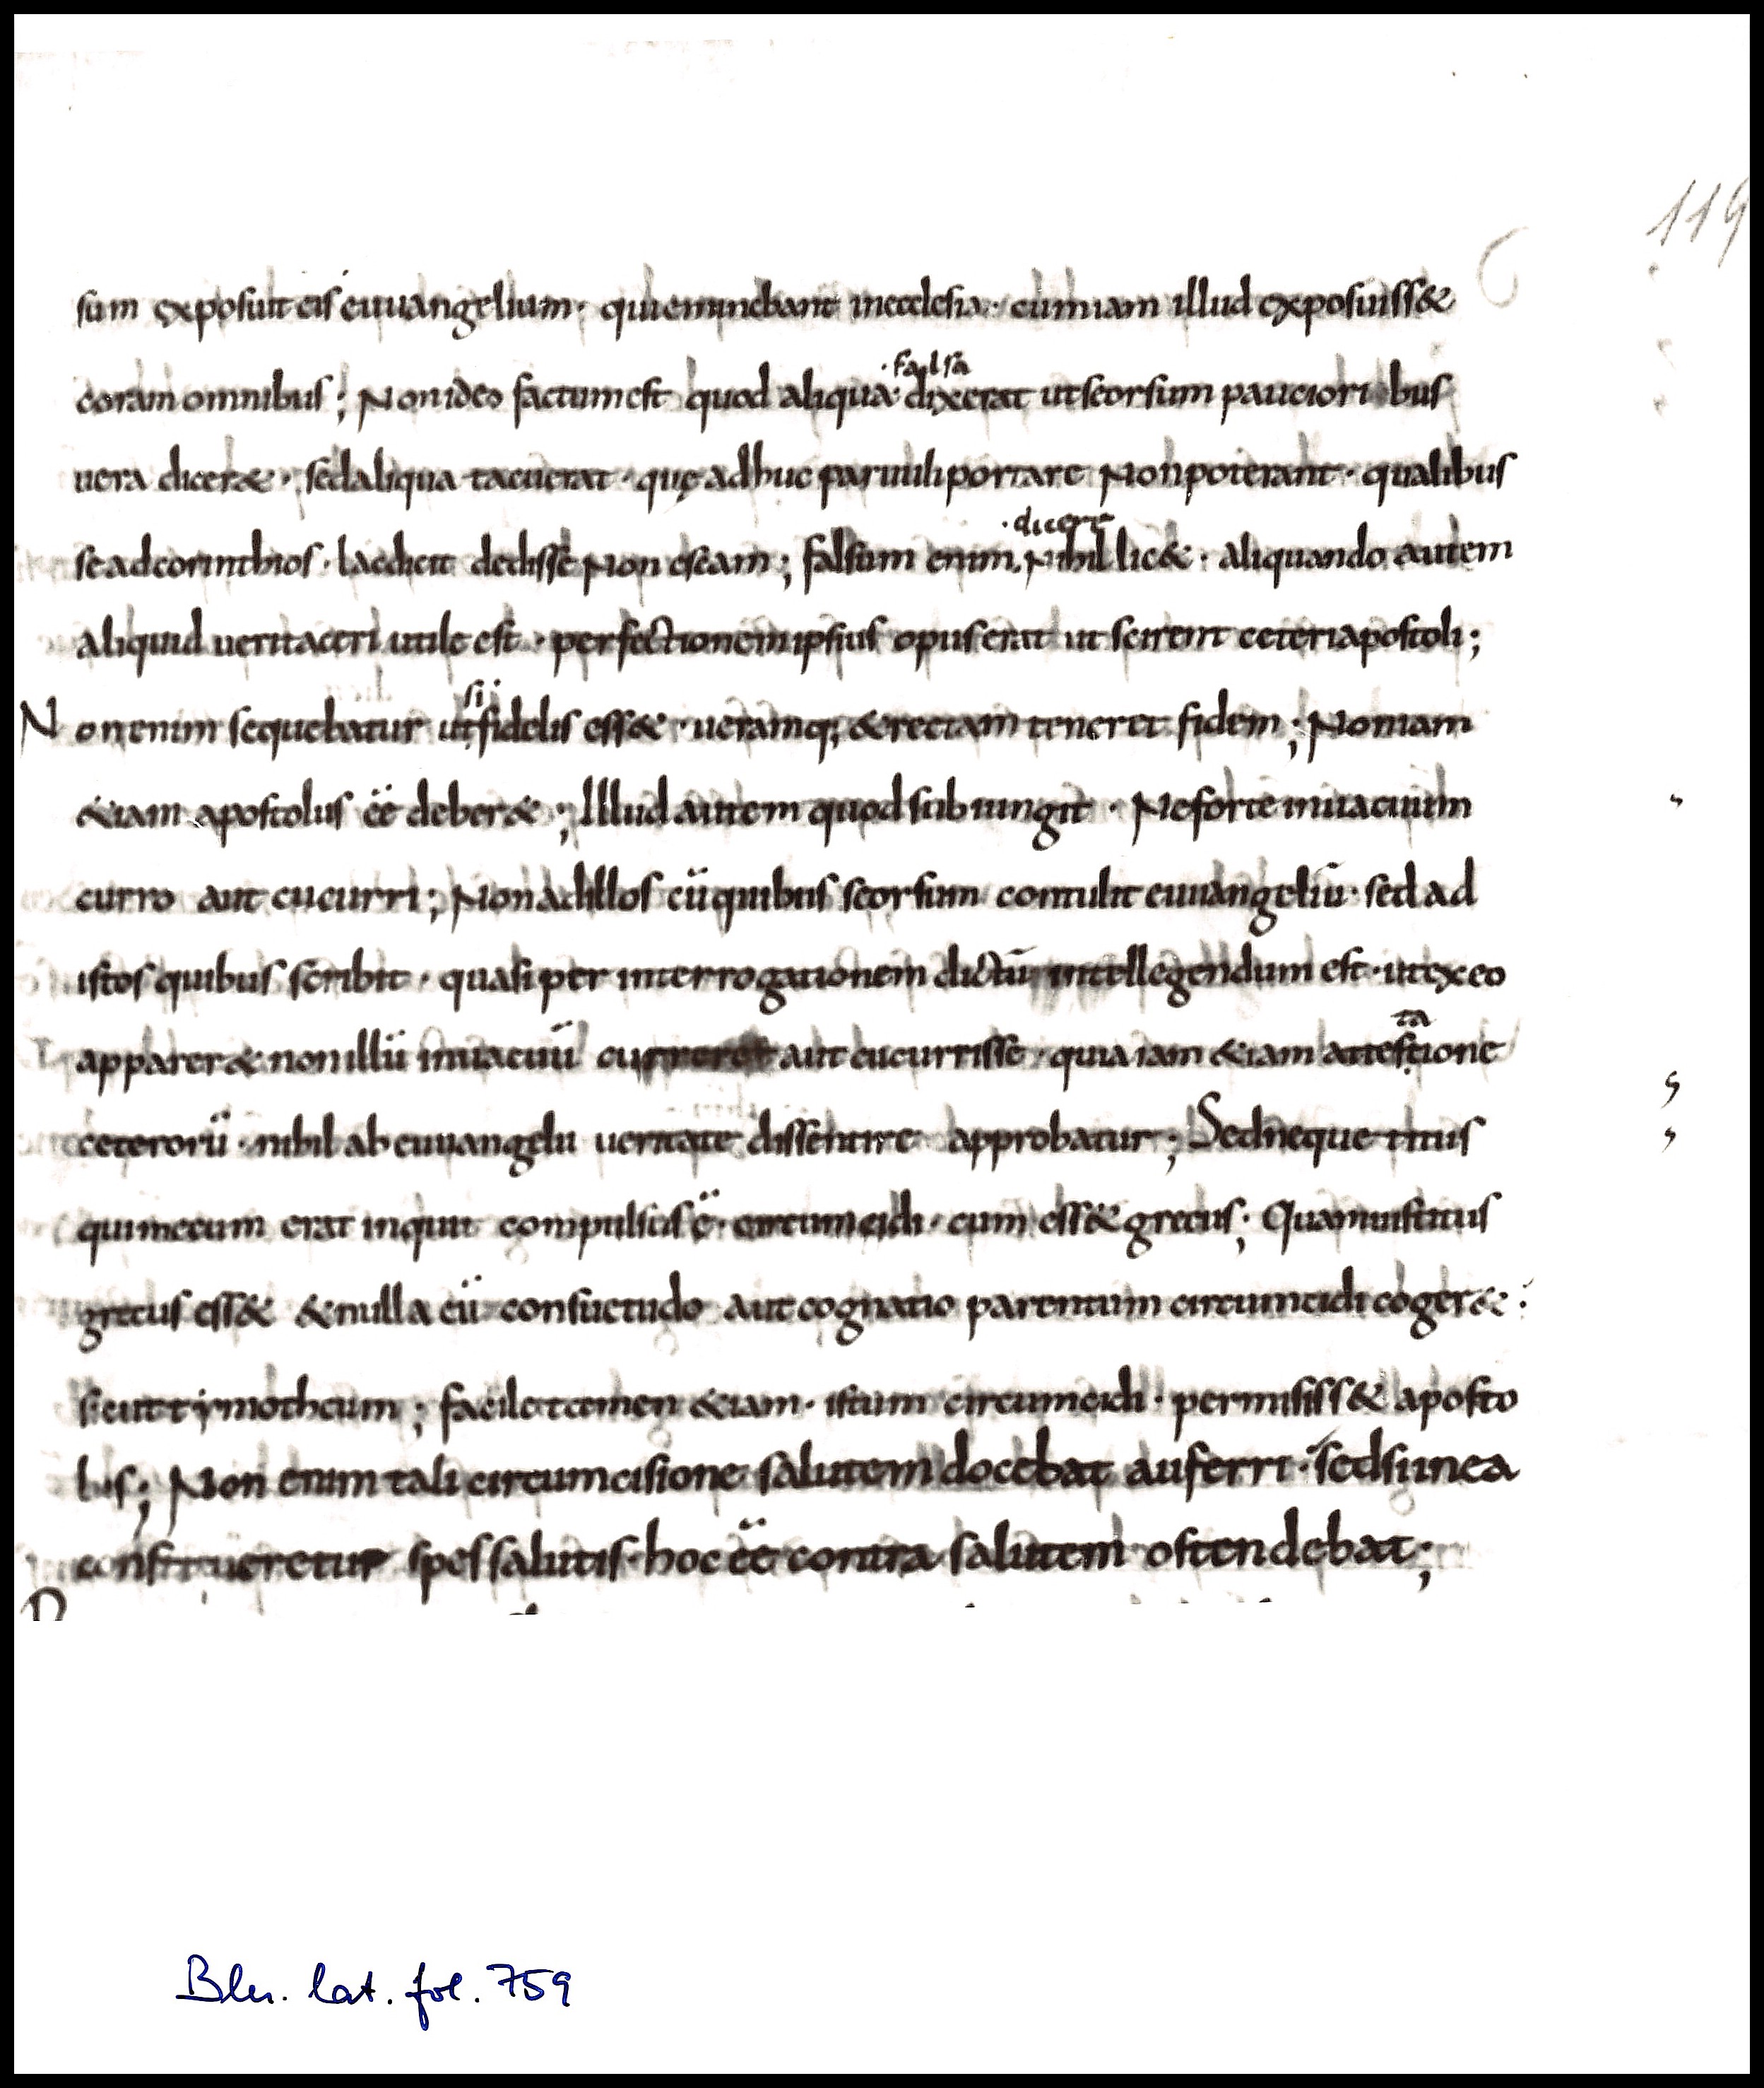 119
sum exposuit eis euuangelium · qui eminebant in ecclesia · cum iam illud exposuiss&
coram omnibus ; Non ideo factum est quod aliqua · falsa · dixerat ut seorsum paucioribus
uera dicer& · sed aliqua tacuerat · quę adhuc paruuli portare Non poterant · qualibus
se ad corinthios · lac dicit dedisse Non escam ; falsum enim · dicere · Nihil lic& · aliquando autem
aliquid ueri taceri utile est · perfectionem ipsius opus erat ut scirent ceteri apostoli ;
Non enim sequebatur ut si fidelis ess& · ueramq; & rectam teneret fidem ; Non iam
&iam apostolus ēē deber& ; Illud autem quod subiungit · Ne forte in uacuum
curro aut cucurri ; Non ad illos cū quibus seorsum contulit euuangeliū · sed ad
istos quibus scribit · quasi per interrogationem dictū intellegendum est · ut ex eo
apparer& non illū in uacuū currere aut cucurrisse · quia iam &iam attestatione
ceterorū · nihil ab euuangelii ueritate dissentire approbatur ; Sed neque titus
qui mecum erat inquit compulsus ē · circumcidi · cum ess& grecus ; Quamuis titus
grecus ess& & nulla eū consuetudo aut cognatio parentum circumcidi coger& ·
sicut tymotheum ; facile temen &iam · istum circumcidi · permisiss& aposto
lus ; Non enim tali circumcisione salutem docebat auferri · sed si in ea
constitueretur spes salutis · hoc ēē contra salutem ostendebat ;
Bln. lat. fol. 759